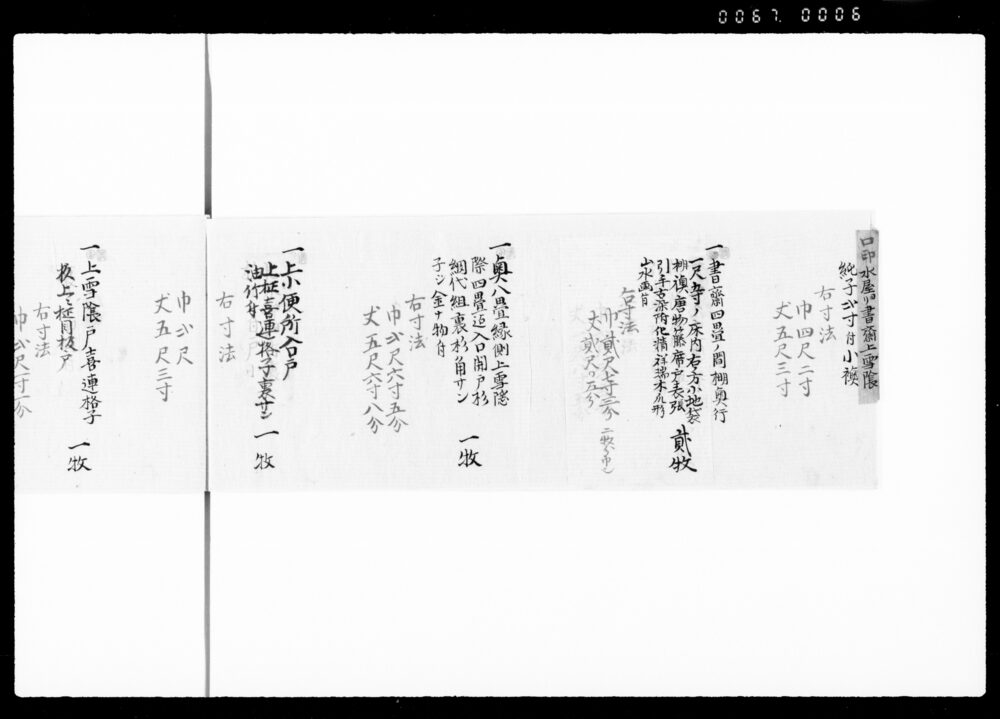 0067. 0006
口印水屋ヨリ書齋上雪隠
純子弐寸廿小襖
右寸法
巾四尺二寸
丈五尺三寸
一書齋四畳ノ間棚奥行
一尺五寸ノ床内右方小地袋
棚襖唐物藤唐戸表張
引手古染附化精祥瑞木瓜形
山水画有 貳牧
右寸法
丈貳尺
一奥八畳縁側上雪隠
際四畳迄入口開戸杉
網代組裏杉角サン
子ジ金ナ物付 一牧
右寸法
巾弐尺六寸五分
丈五尺六寸八分
一上小便所入口戸
上桩喜連格子裏サン
油付 一牧
右寸法
巾弐尺
丈五尺三寸
一上雪隠戸喜連格子
板上々桩目板戸 一牧
右寸法